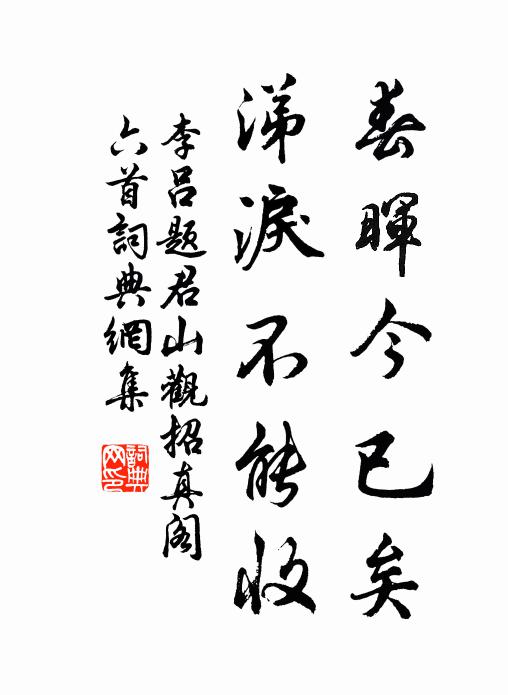 春暉今已矣
涕淚不能收
李呂題君山觀招真閣
六首詞典網集
詞典
网印